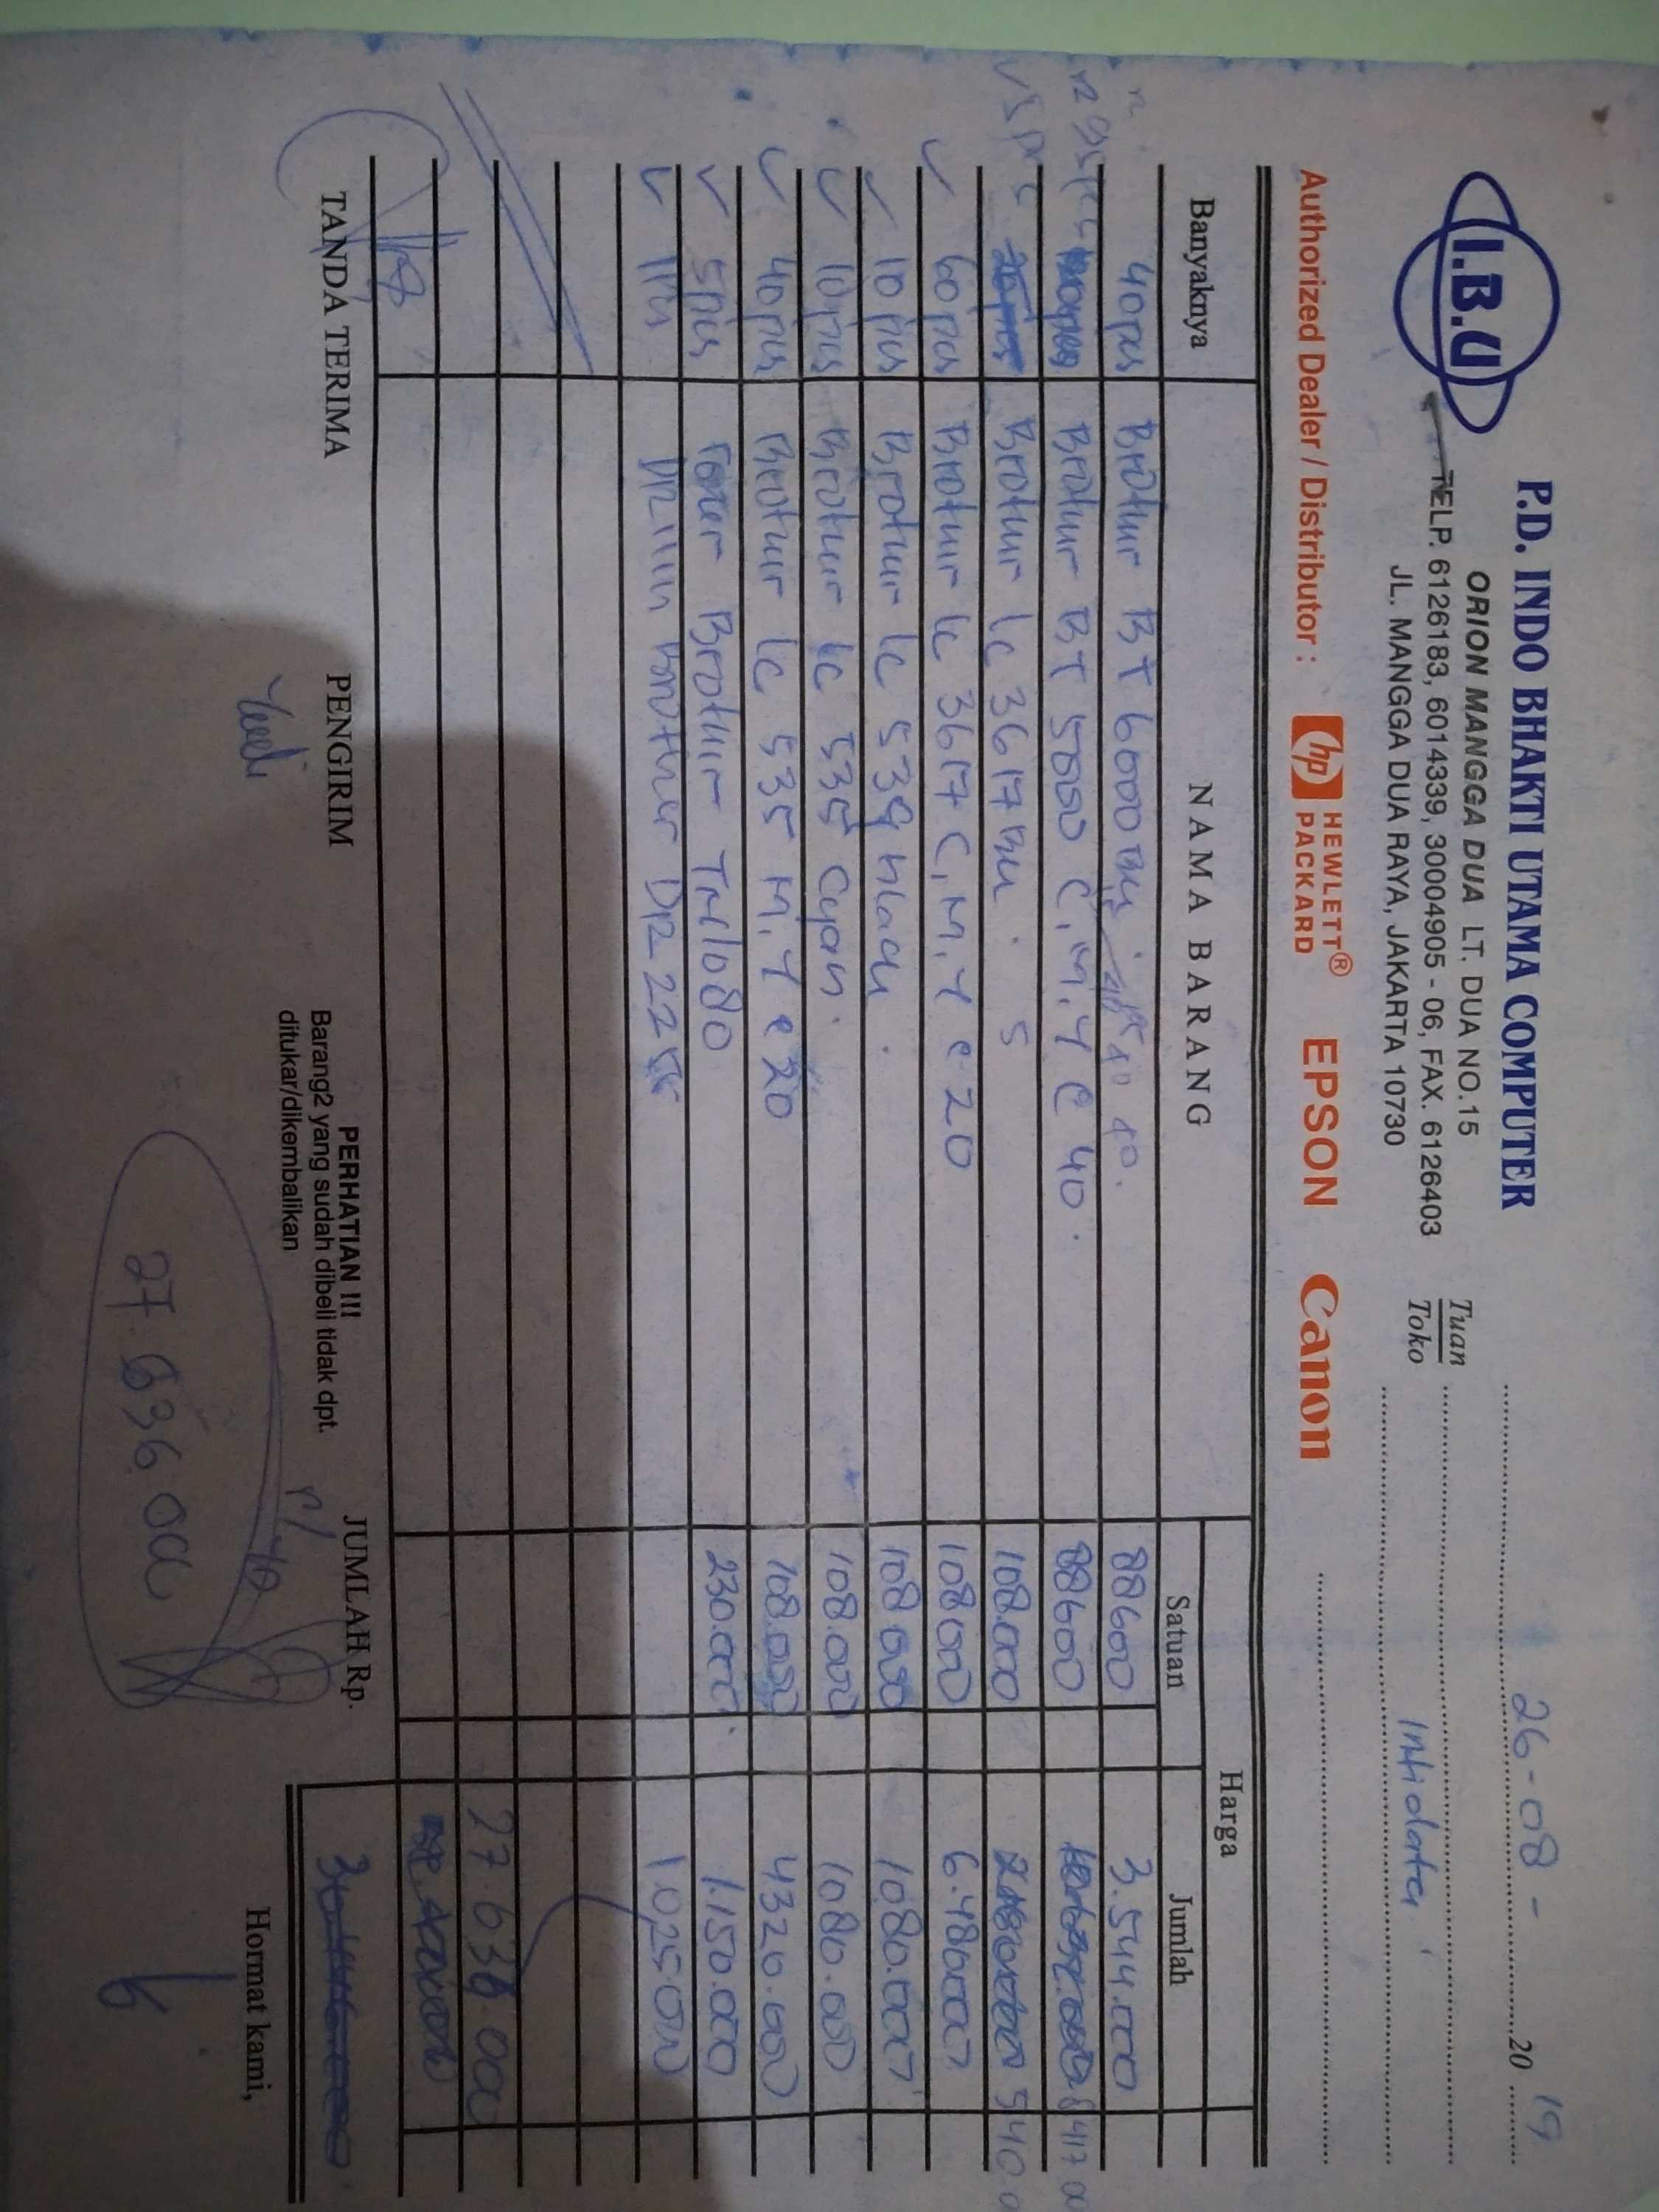 I.B.U
P.D. INDO BHAKTI UTAMA COMPUTER
ORION MANGGA DUA LT. DUA NO.15
TELP. 6126183, 6014339, 30004905 - 06, FAX. 6126403
JL. MANGGA DUA RAYA, JAKARTA 10730
26-08- 20 19
Tuan
Toko Intidata
Authorized Dealer / Distributor : hp HEWLETT® PACKARD EPSON Canon
Banyaknya NAMA BARANG Harga
Satuan Jumlah
40 pcs Brother BT 6000 88600 3.544.000
Brother BT 5000 C, M, Y @ 40. 88600
Brother Lc 3617 5 108.000 540.0
60 pcs Brother Lc 3617 C, M, Y @ 20 108000 6.480000
10 pcs Brother Lc 539 Black. 108000 1080.000
10 pcs Brother Lc 535 Cyan. 108.000 1080.000
40 pcs Brother Lc 535 M, Y @ 20 108.000 4320.000
5 pcs Toner Brother 230.000. 1.150.000
Brother DR 2255 1.025.000
27.636.000
TANDA TERIMA PENGIRIM PERHATIAN !!! JUMLAH Rp.
Barang2 yang sudah dibeli tidak dpt.
ditukar/dikembalikan
Hormat kami,
27.636.000